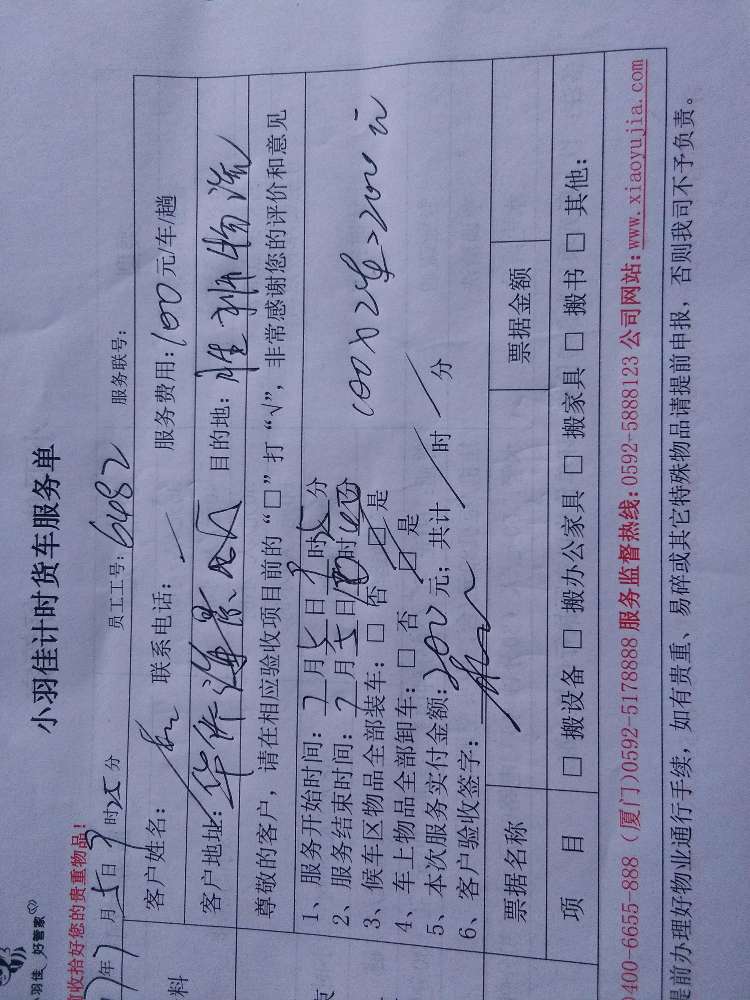 小羽佳 好管家
小羽佳计时货车服务单
收拾好您的贵重物品!
年7月5日9时25分 员工工号:6482 服务联号:
料
客户姓名: 联系电话: 服务费用:100元/车/趟
客户地址: 目的地:
尊敬的客户,请在相应验收项目前的“□”打“√”,非常感谢您的评价和意见
1、服务开始时间:7月5日9时分
2、服务结束时间:7月5日时分
3、候车区物品全部装车:□否 □是
100×2车=200元
4、车上物品全部卸车:□否 □是
5、本次服务实付金额:200元;共计 时 分
6、客户验收签字:
票据名称 票据金额
项 目 □搬设备 □搬办公家具 □搬家具 □搬书 □其他:
400-6655-888 (厦门)0592-5178888 服务监督热线:0592-5888123 公司网站:www.xiaoyujia.com
提前办理好物业通行手续,如有贵重、易碎或其它特殊物品请提前申报,否则我司不予负责。